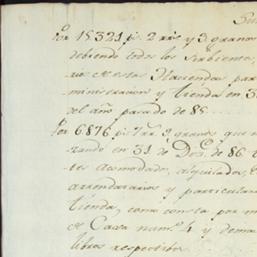 Por 15321 ps. 2 rrs. y 3 granos
debiendo todos los Sirbientes
de estas Haciendas par
ministracion y tienda en 3
del año pasado de 85
Por 6876 ps. 7 rr. 9 granos que
rando en 31 de Dre. de 86
tes Acomodados, alquilados,
arrendatarios y particular
tienda, como consta por
de Caxa num.o 4 y dema
libros respectibos